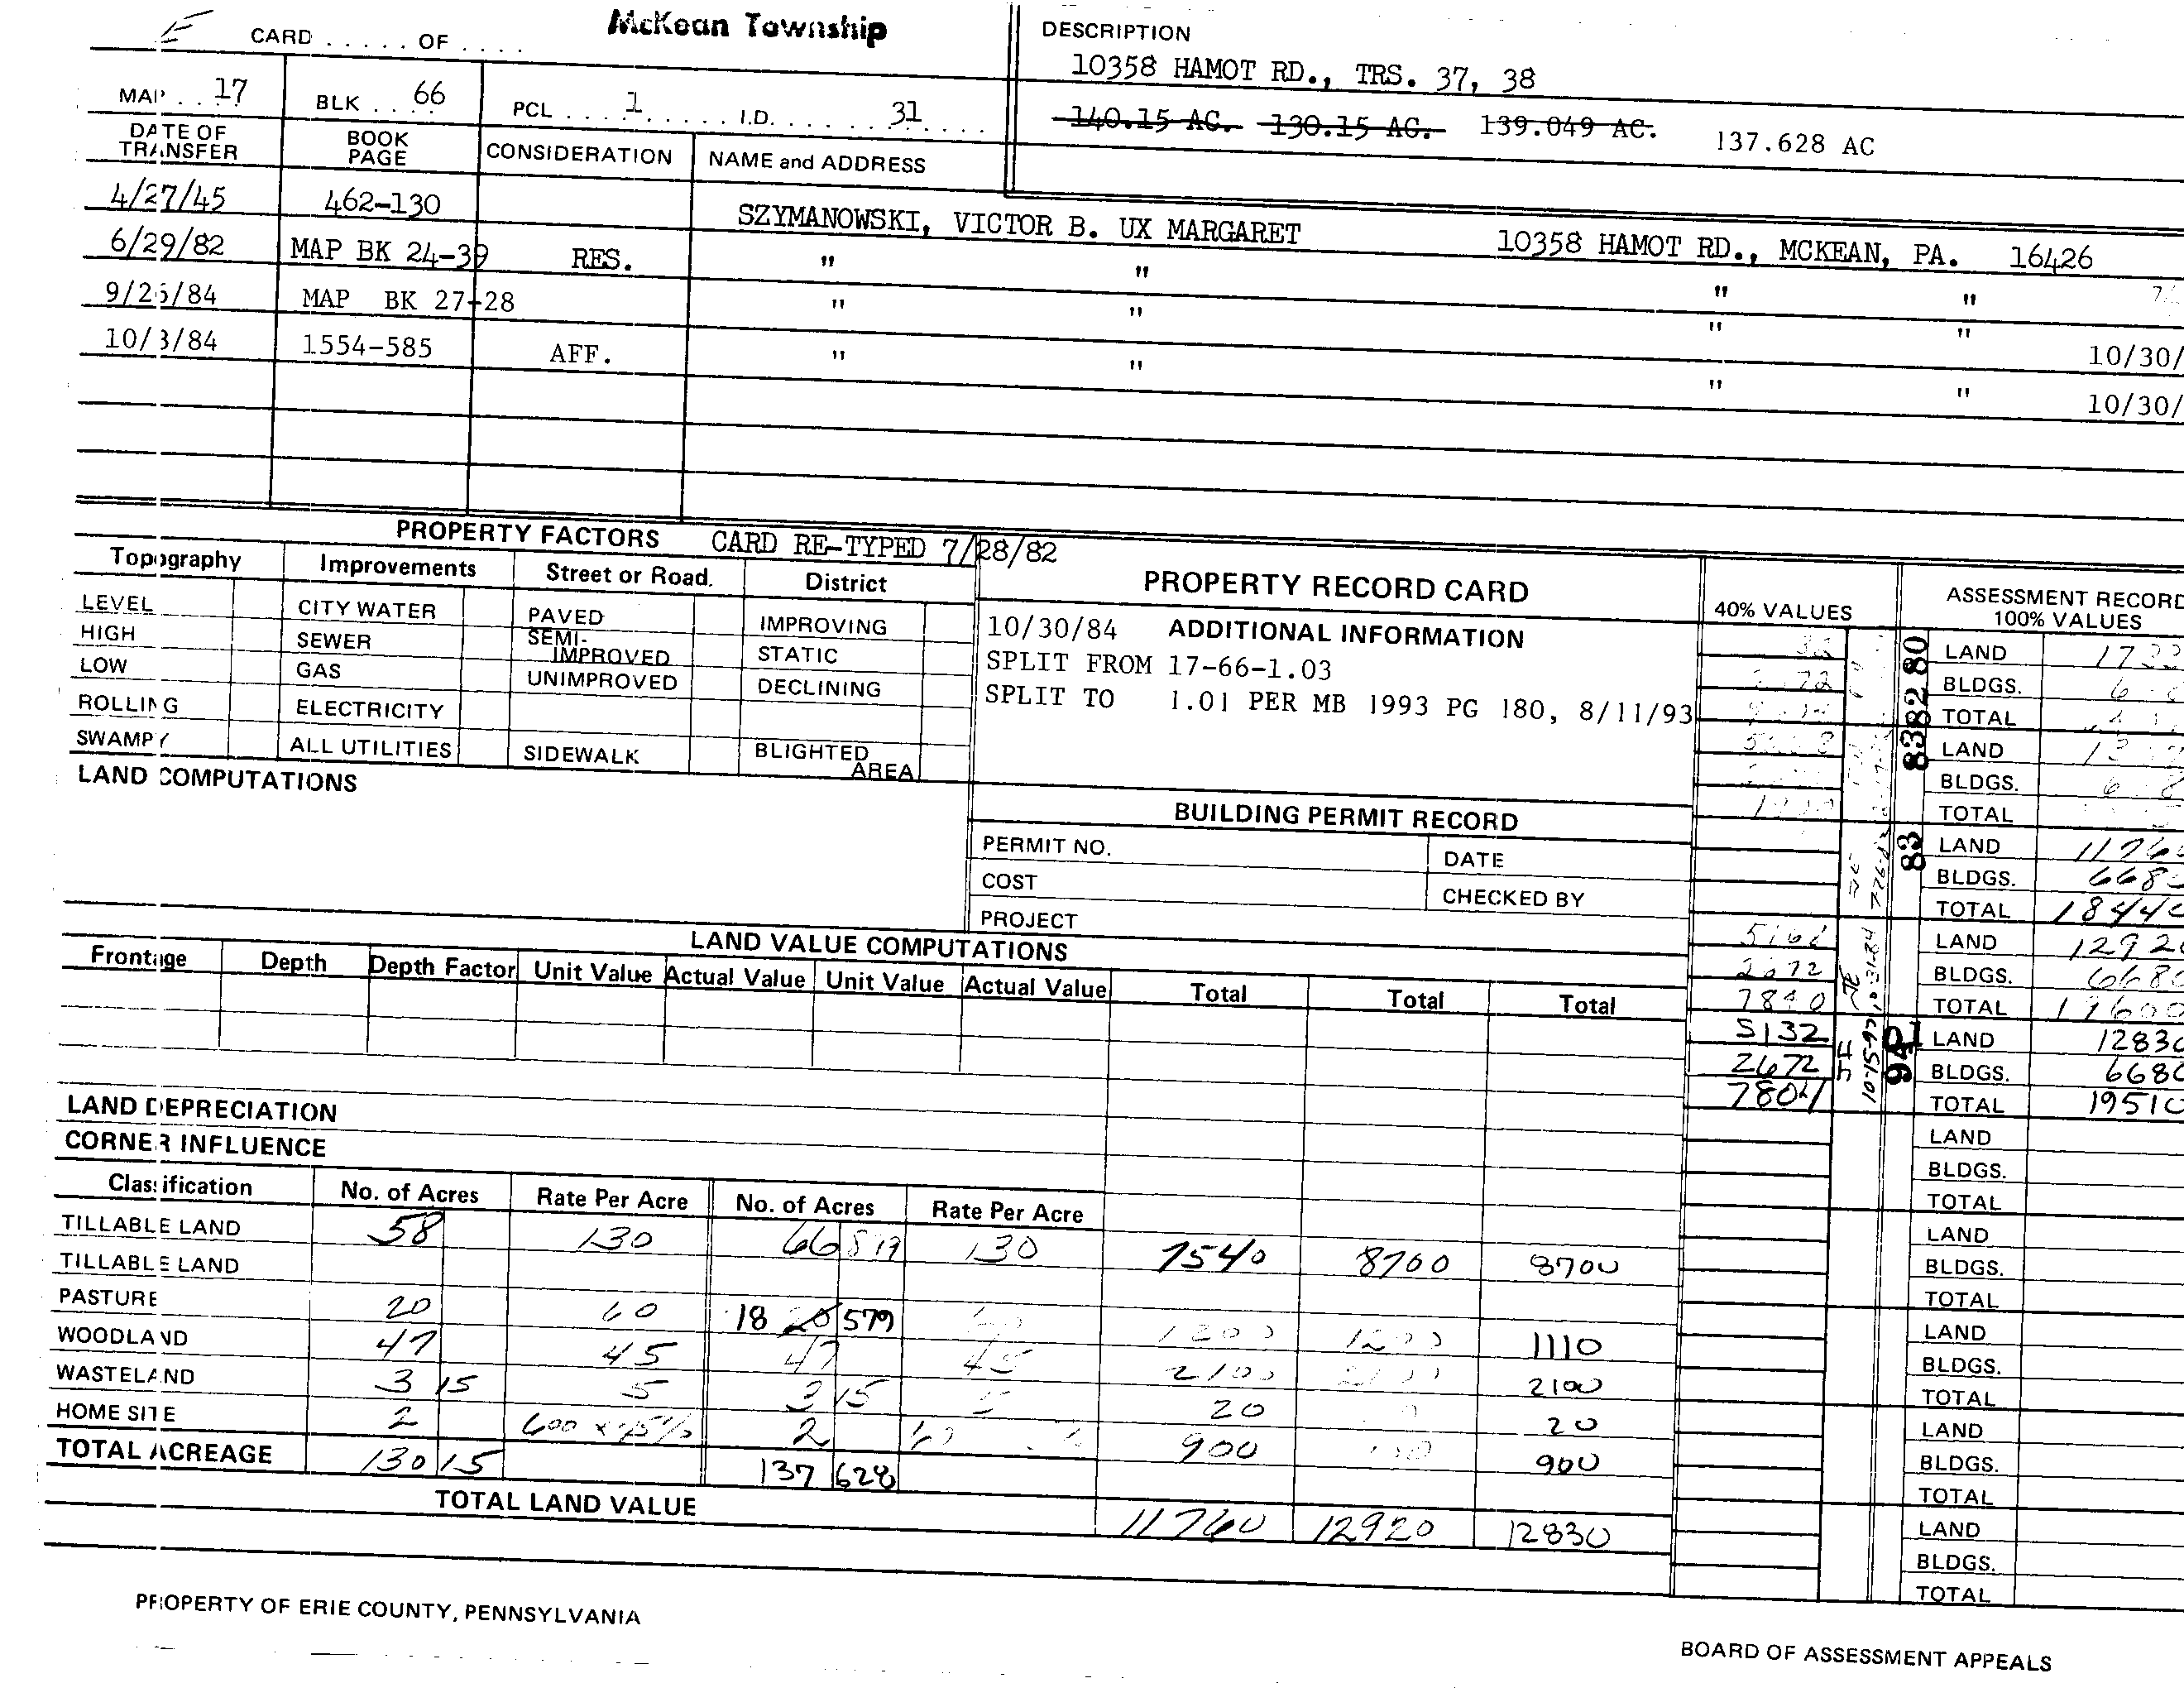 McKean Township
CARD ..... OF ....
DESCRIPTION
10358 HAMOT RD., TRS. 37, 38
MAP .. 17 BLK .. 66 PCL .... 1 ...... I.D. ....... 31 ....
140.15 AC. 130.15 AC. 139.049 AC. 137.628 AC
DATE OF TRANSFER BOOK PAGE CONSIDERATION NAME and ADDRESS
4/27/45 462-130 SZYMANOWSKI, VICTOR B. UX MARGARET 10358 HAMOT RD., MCKEAN, PA. 16426
6/29/82 MAP BK 24-39 RES. " " " "
9/26/84 MAP BK 27-28 " " " " 10/30/
10/3/84 1554-585 AFF. " " " " 10/30/
PROPERTY FACTORS CARD RE-TYPED 7/28/82
Topography Improvements Street or Road. District
LEVEL CITY WATER PAVED IMPROVING
HIGH SEWER SEMI-IMPROVED STATIC
LOW GAS UNIMPROVED DECLINING
ROLLING ELECTRICITY
SWAMPY ALL UTILITIES SIDEWALK BLIGHTED AREA
LAND COMPUTATIONS
PROPERTY RECORD CARD
10/30/84 ADDITIONAL INFORMATION
SPLIT FROM 17-66-1.03
SPLIT TO 1.01 PER MB 1993 PG 180, 8/11/93
BUILDING PERMIT RECORD
PERMIT NO. DATE
COST CHECKED BY
PROJECT
40% VALUES
ASSESSMENT RECORD
100% VALUES
80 LAND
BLDGS.
82 TOTAL
83 LAND
BLDGS.
TOTAL
83 LAND 11760
BLDGS. 6680
TOTAL 18440
5168 LAND 12920
2672 BLDGS. 6680
7840 10-31-84 TOTAL 19600
5132 94 LAND 12830
2672 BLDGS. 6680
7804 10-15-93 TOTAL 19510
LAND
BLDGS.
TOTAL
LAND
BLDGS.
TOTAL
LAND
BLDGS.
TOTAL
LAND
BLDGS.
TOTAL
LAND
BLDGS.
TOTAL
LAND VALUE COMPUTATIONS
Frontage Depth Depth Factor Unit Value Actual Value Unit Value Actual Value Total Total Total
LAND DEPRECIATION
CORNER INFLUENCE
Classification No. of Acres Rate Per Acre No. of Acres Rate Per Acre
TILLABLE LAND 58 130 66 130 7540 8700 8700
TILLABLE LAND
PASTURE 20 60 18 20 579 1200 1200 1110
WOODLAND 47 45 47 45 2100 2100 2100
WASTELAND 3 15 5 3 15 5 20 20
HOME SITE 2 600 x 75% 2 900 900
TOTAL ACREAGE 130 15 137 628
TOTAL LAND VALUE 11760 12920 12830
PROPERTY OF ERIE COUNTY, PENNSYLVANIA
BOARD OF ASSESSMENT APPEALS